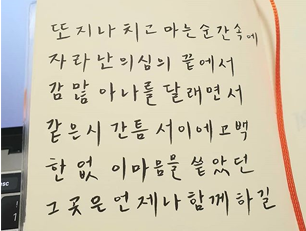 또 지나 치고 마는 순간 속에
자라 난 의심의 끝에서
감 많 아 나를 달래면서
같은 시 간 틈 서 이에 고백
한 없 이 마음을 쏟았던
그 곳은 언 제나 함께 하길
esc